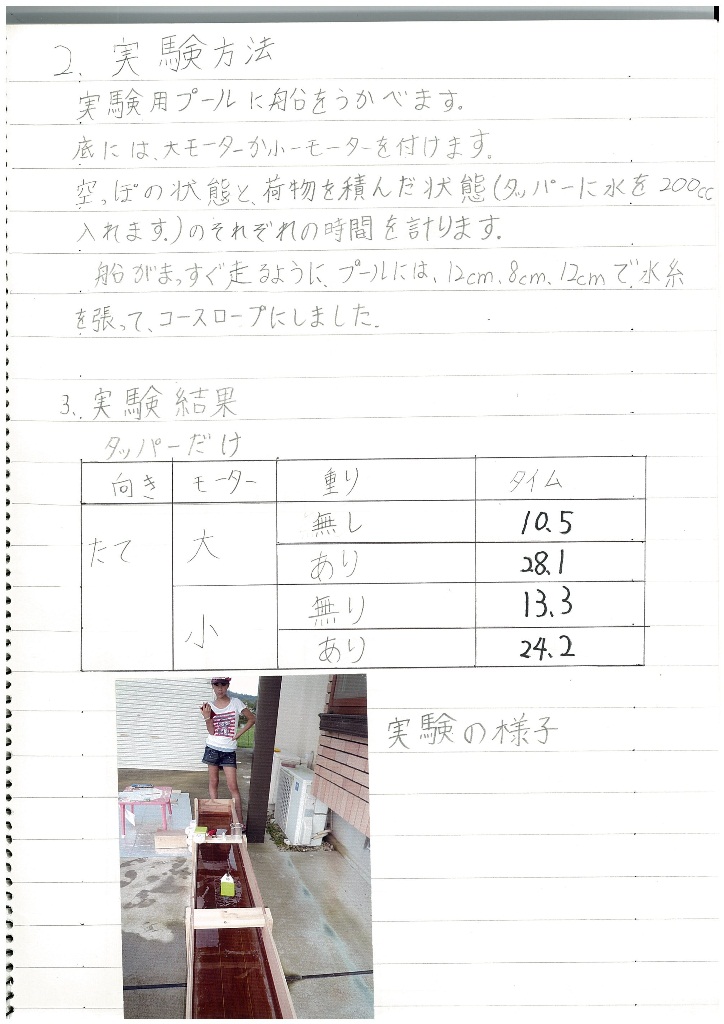 2. 実験方法
実験用プールに船をうかべます。
底には、大モーターか小モーターを付けます。
空っぽの状態と、荷物を積んだ状態(タッパーに水を200cc
入れます。)のそれぞれの時間を計ります。
船がまっすぐ走るように、プールには、12cm、8cm、12cmで水糸
を張って、コースロープにしました。
3. 実験結果
タッパーだけ
向き モーター 重り タイム
たて 大 無し 10.5
あり 28.1
小 無り 13.3
あり 24.2
実験の様子